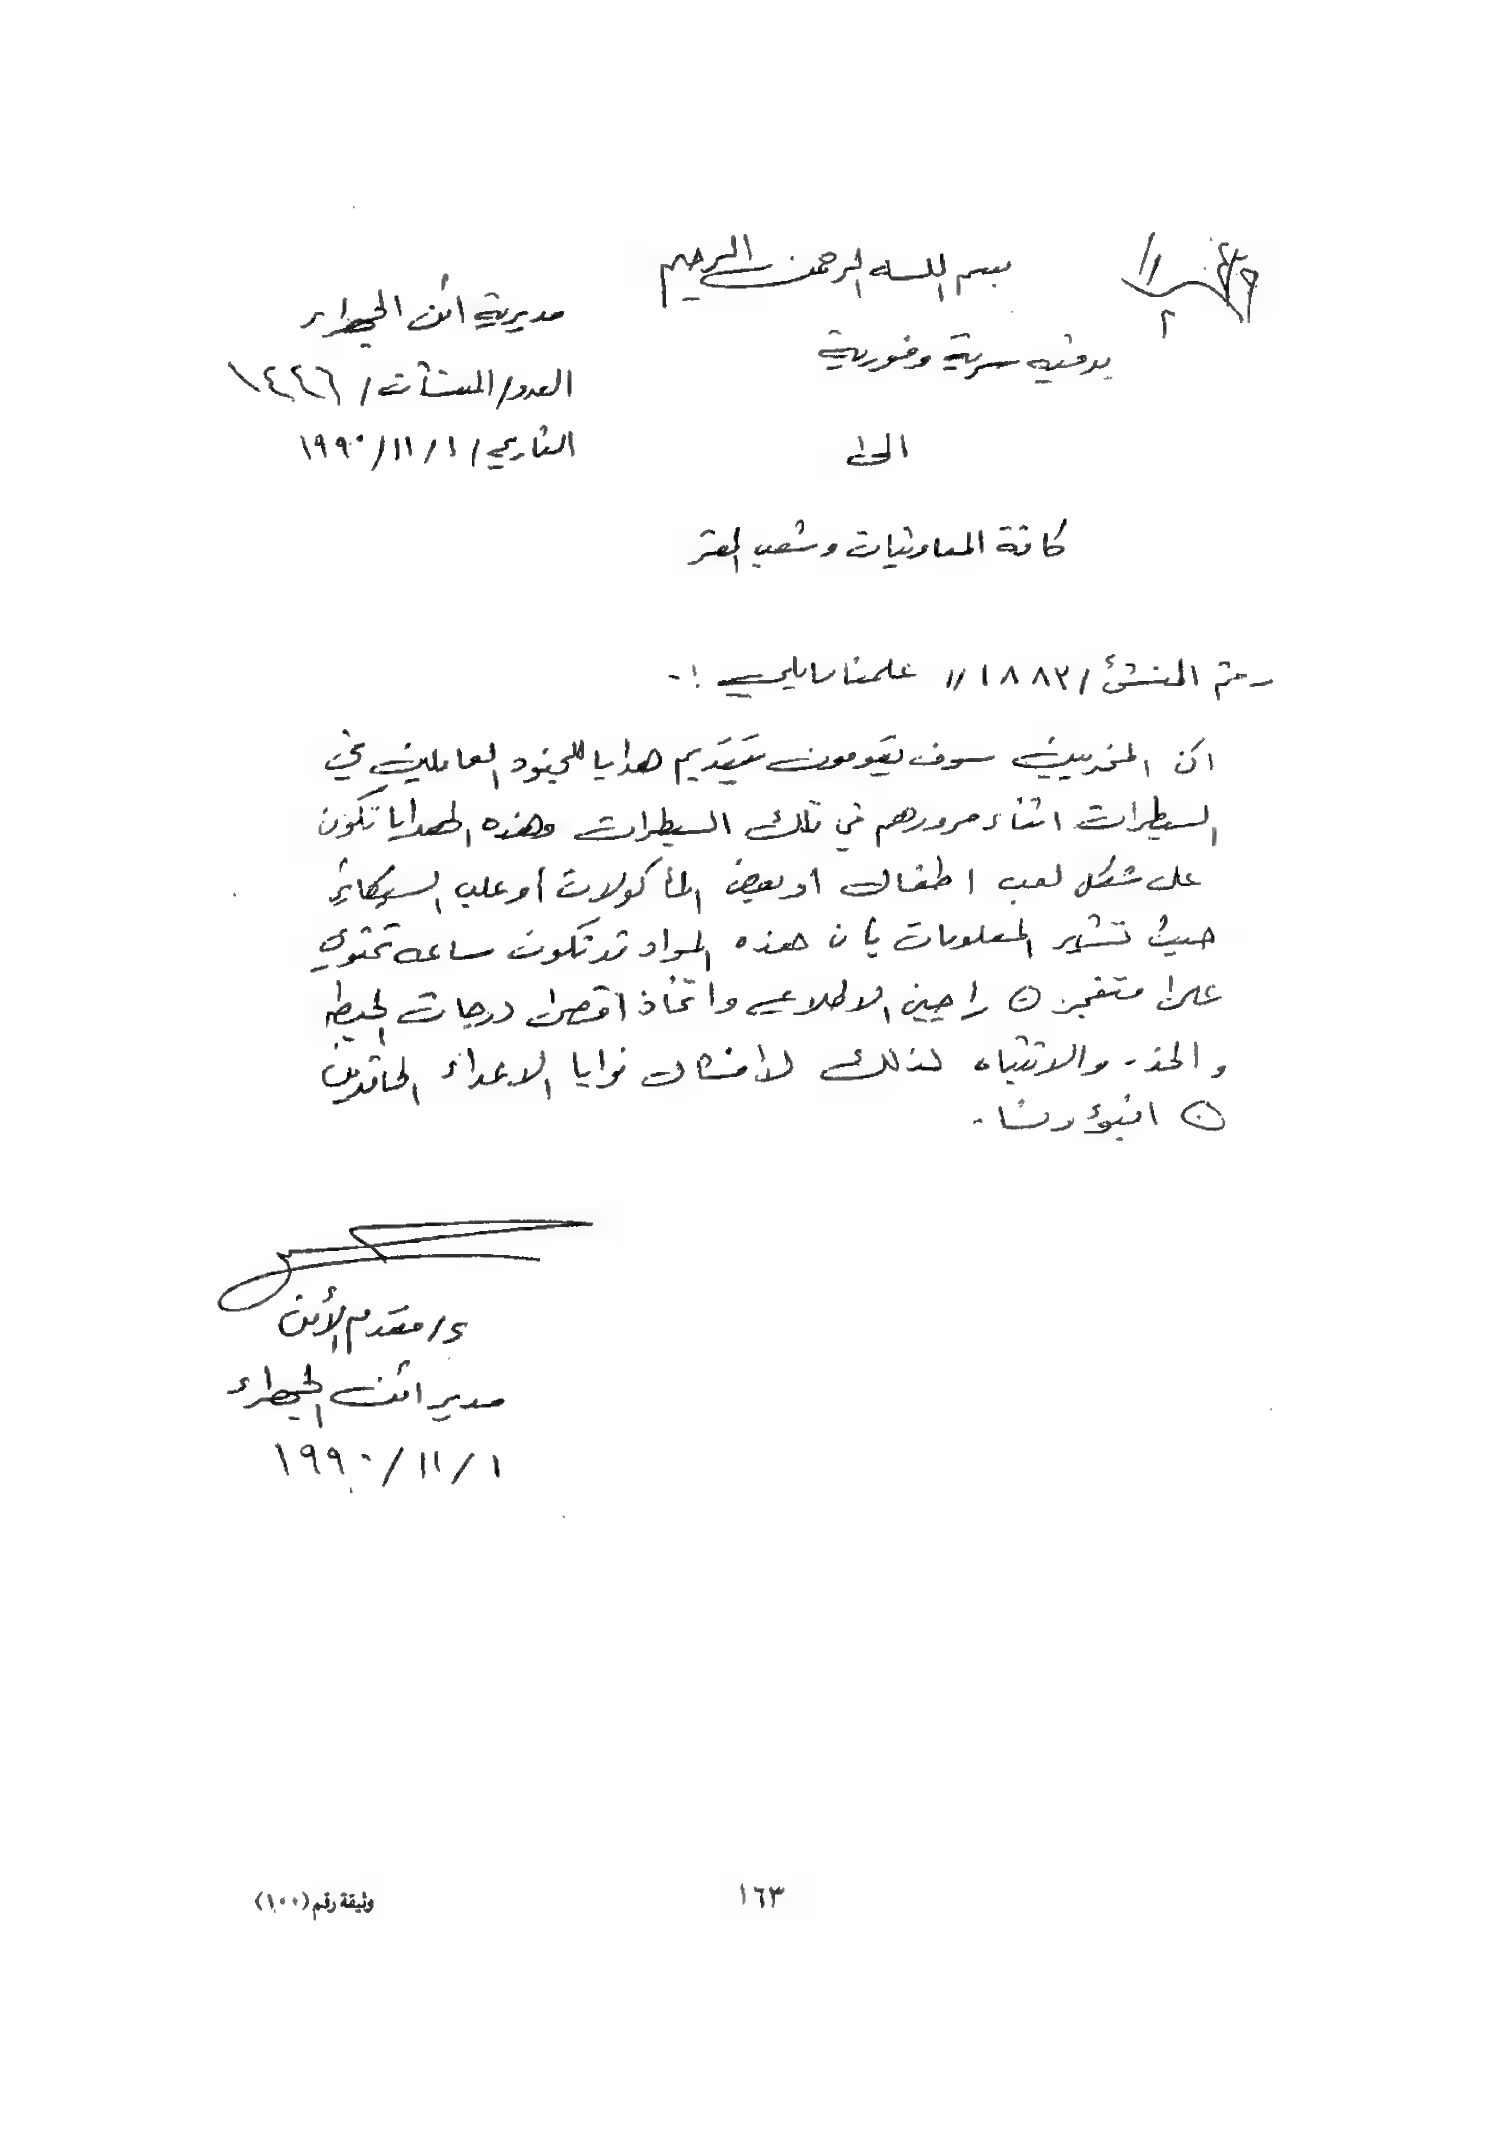 بسم الله الرحمن الرحيم
مديرية أمن الجهراء
برقية سرية وفورية
العدد/ المنشآت/ ١٤٤٦
التاريخ/ ١/ ١١/ ١٩٩٠
الى
كافة المعاونيات وشعب المقر
رقم المنشئ/ ١٨٨٢// علمنا مايلي :-
ان المخربين سوف يقومون بتقديم هدايا للجنود العاملين في
السيطرات اثناء مرورهم في تلك السيطرات وهذه الهدايا تكون
على شكل لعب اطفال او بعض المأكولات أو علب السيكائر
حيث تشير المعلومات بأن هذه المواد قد تكون ساعه تحتوي
على متفجر ٥ راجين الاطلاع واتخاذ اقصى درجات الحيطه
والحذر والانتباه لذلك لأفشال نوايا الاعداء الحاقدين
٥ انبؤونا.
ع/ مقدم الأمن
مدير أمن الجهراء
١/ ١١/ ١٩٩٠
١٦٣
وثيقة رقم (١٠٠)